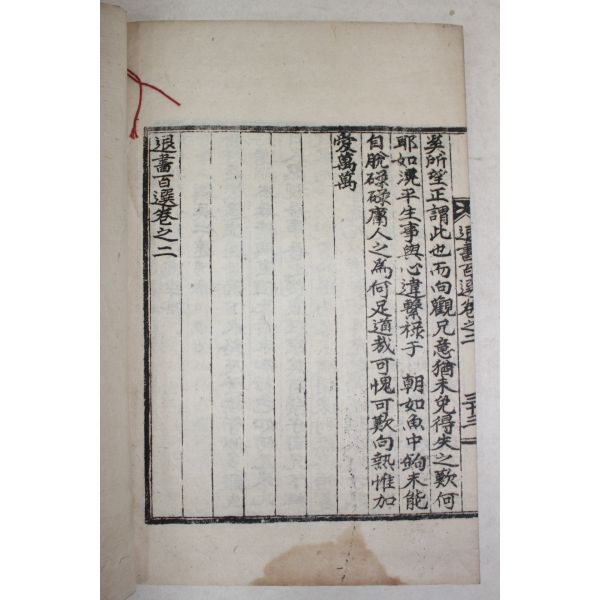 退書百選卷之二 三十三
吾所望正謂此也而向觀兄意猶未免得失之歎何
耶如滉平生事與心違繫祿于 朝如魚中鉤未能
自脫碌碌庸人之爲何足道哉可愧可歎向熱惟加
愛萬萬
退書百選卷之二